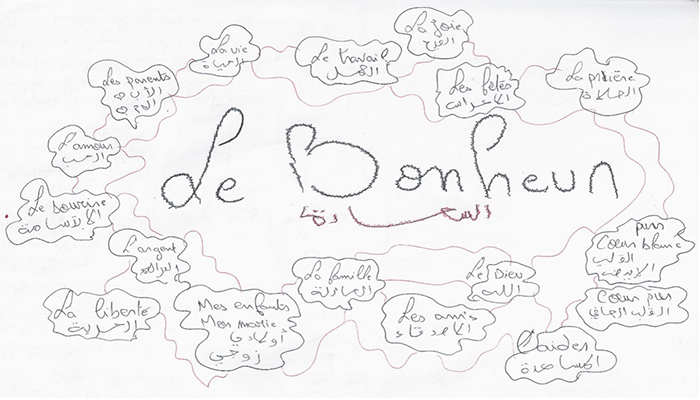 La joie
الفرح
La vie
الحياة
Le travail
العمل
Les parents
الأب و
الأم
Les fêtes
الأعراس
La prière
الصلاة
L'amour
الحب
Le Bonheur
السعادة
Le sourire
الابتسامة
L'argent
La famille
العائلة
Le Dieu
الله
pur
Cœur blanc
القلب
الأبيض
Cœur pur
القلب الصافي
La liberté
الحرية
Mes enfants
Mon marie
أولادي
زوجي
Les amis
الأصدقاء
L'aider
المساعدة